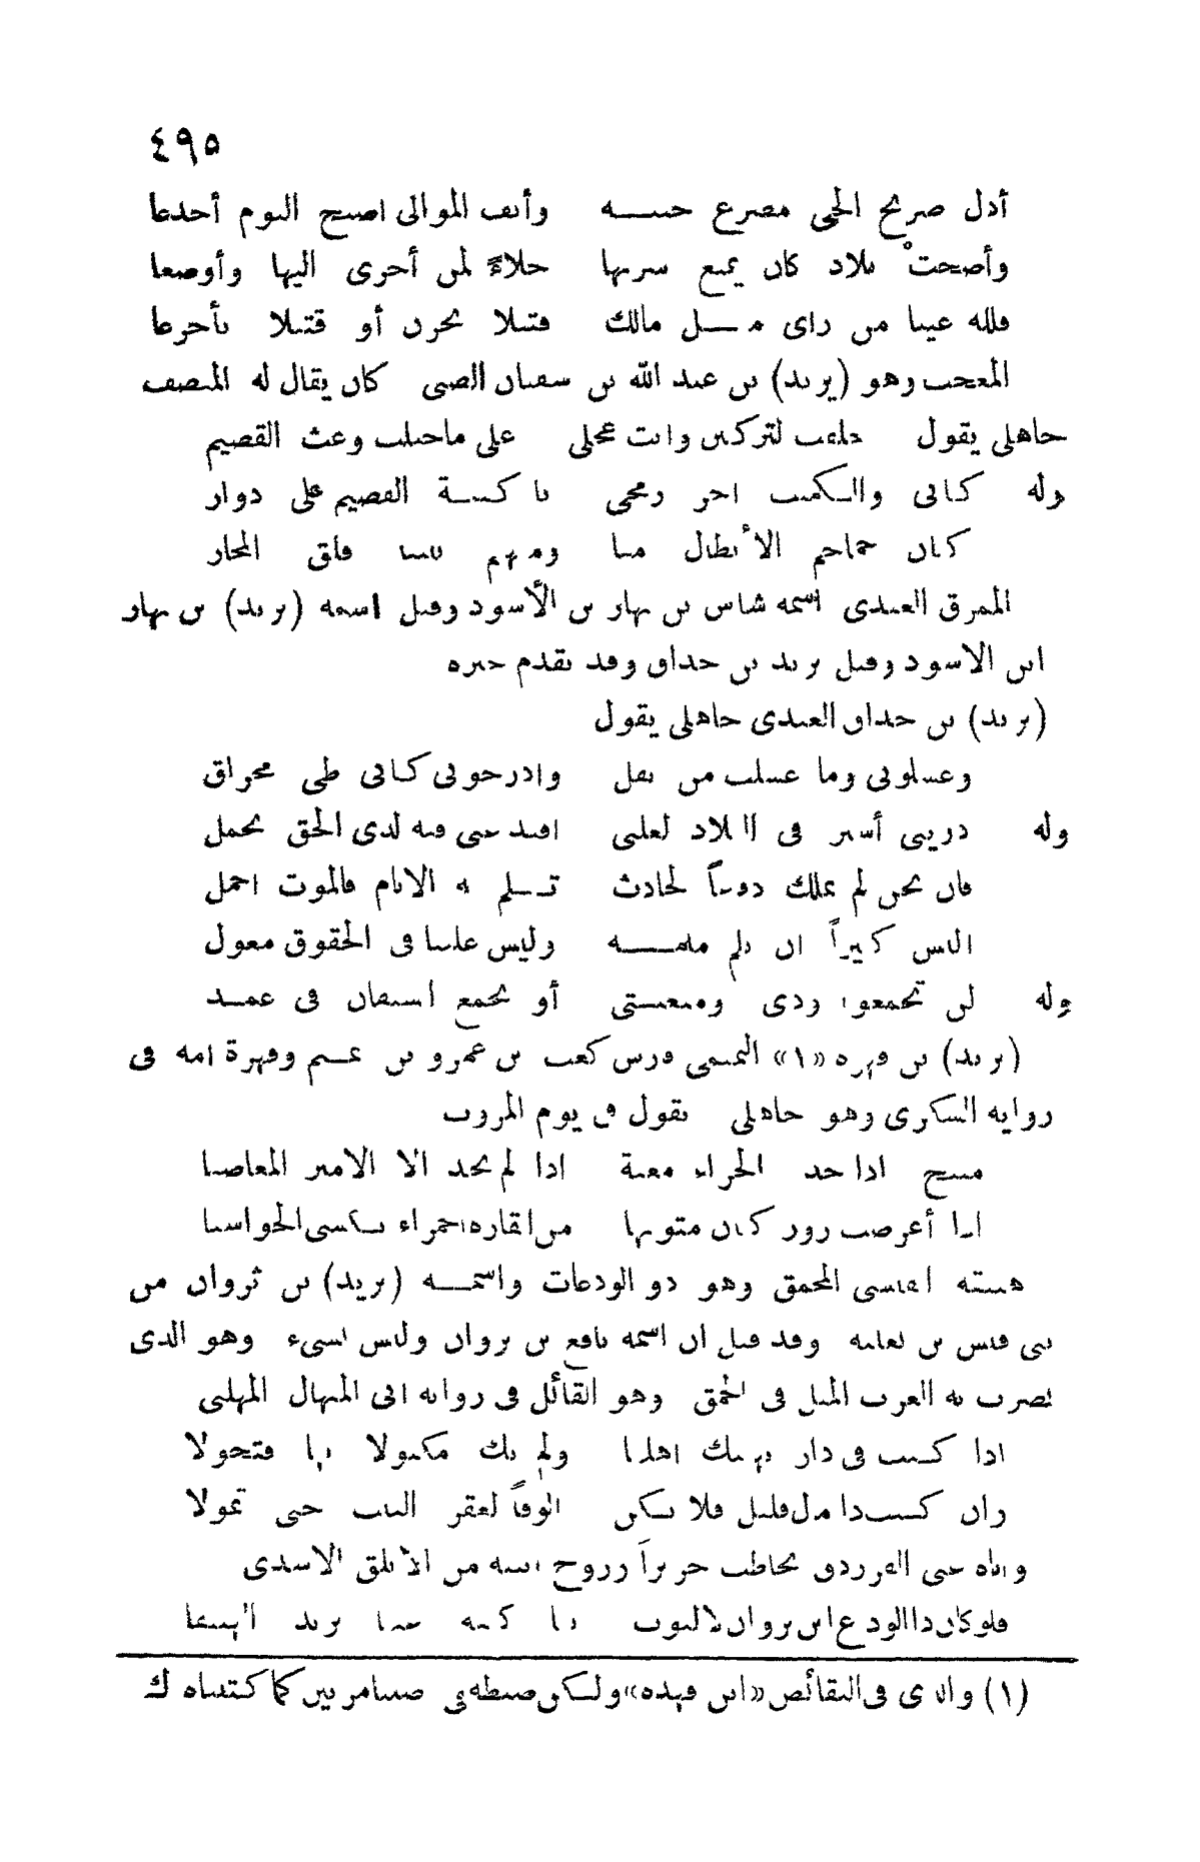 ٤٩٥
أذل صريح الحي مصرع جنبه وأنف الموالى اصبح اليوم أجدعا
وأضحتْ بلاد كان يمنع سربها حلاءً لمن أجرى اليها وأوضعا
فلله عينا من راى مثل مالك قتيلا بحزن أو قتيلا بأجرعا
المعجب وهو (يزيد) بن عبد الله بن سفيان الضبي كان يقال له المنصف
جاهلي يقول لتركبن وانت عجلى على ماخيلت وعث القصيم
وله كأنى والكميت اجر رمحى باكثبة القصيم على دوار
كأن جماجم الأبطال منا ومنهم بيننا فلق المحار
الممزق العبدى اسمه شاس بن نهار بن الأسود وقيل اسمه (يزيد) بن نهار
ابن الاسود وقيل يزيد بن خذاق وقد تقدم خبره
(يزيد) بن خذاق العبدى جاهلي يقول
وغسلونى وما غسلت من تفل وادرجونى كأنى طى مخراق
وله ذرينى أسير فى البلاد لعلنى افيد غنى فيه لذى الحق محمل
فان نحن لم نملك دفاعاً لحادث تلم به الايام فالموت اجمل
اليس كبيراً ان تلم ملمة وليس علينا فى الحقوق معول
وله لن تجمعوا ودى ومعتبتى أو يجمع السيفان فى غمد
(يزيد) بن قهرة «١» التميمى فارس كعب بن عمرو بن تميم وقهرة امه فى
رواية السكرى وهو جاهلي يقول فى يوم المروت
اذا لم نجد الا الامير المعاصيا
أعرضت زور كأن متونها
هبنقة القيسى المحمق وهو ذو الودعات واسمه (يزيد) بن ثروان من
بنى قيس بن ثعلبة وقد قيل ان اسمه نافع بن ثروان وليس بشىء وهو الذى
تضرب به العرب المثل فى الحمق وهو القائل فى رواية ابى المنهال المهلبى
اذا كنت فى دار يهينك اهلها ولم تك مكبولا بها فتحولا
وان كنت ذا مال قليل فلا تكن الوفاً لعقر البيت حتى تمولا
واياه عنى الفرزدق يخاطب جريراً وزوج ابنته من الأبلق الاسدى
فلو كان ذا الودع ابن ثروان لالتوت بها كفه يزيد الهبنقا
(١) والذى فى النقائض «ابن قهده» ولكن ضبطه فى كما كتبناه ك